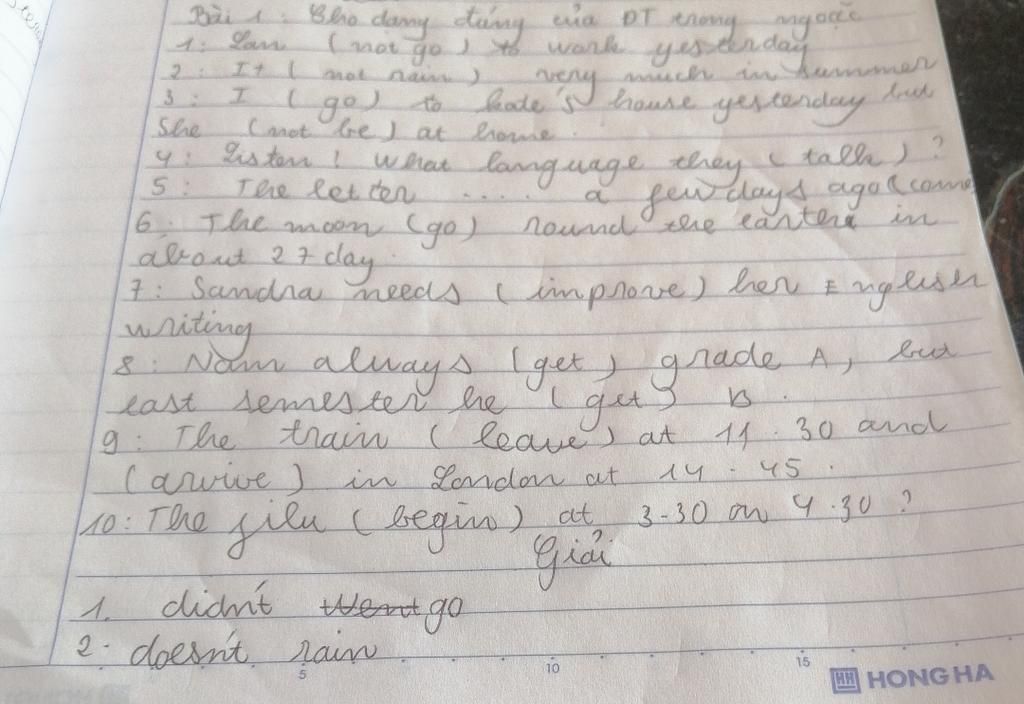 Bài 1: Cho dạng đúng của ĐT trong ngoặc
1: Lan (not go) to work yesterday
2: It (not rain) very much in summer
3: I (go) to Kate's house yesterday but
She (not be) at home.
4: Listen! What language they (talk)?
5: The letter ..... a few days ago (come
6: The moon (go) round the earthe in
about 27 day.
7: Sandra needs (improve) her English
writing
8: Nam always (get) grade A, but
last semester he (get) B.
9: The train (leave) at 11.30 and
(arvive) in London at 14.45.
10: The film (begin) at 3-30 or 4.30?
Giải
1. didn't went go
2. doesn't rain
5 10 15
HH HONG HA